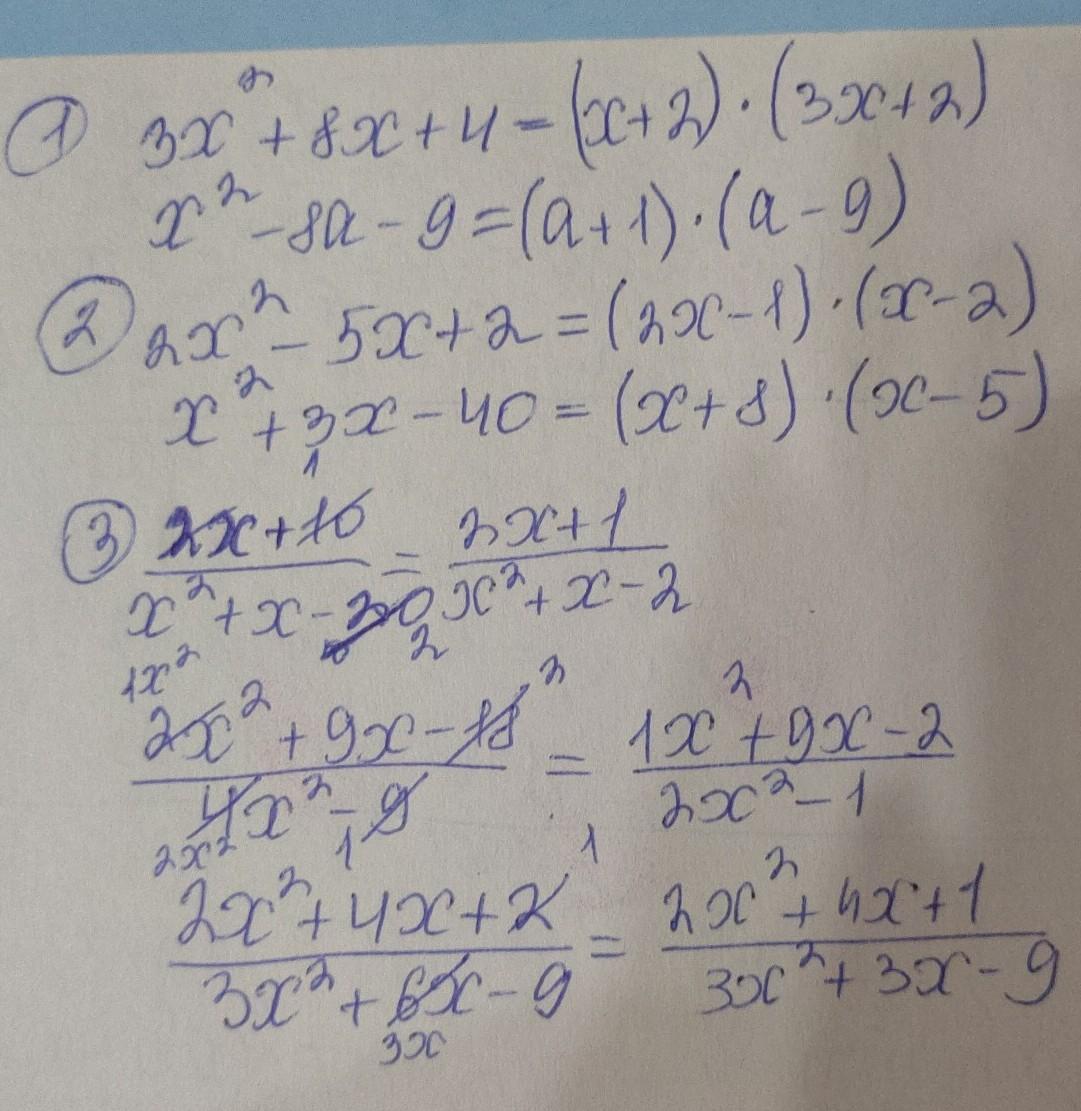 ① 3x² + 8x + 4 = (x+2) · (3x+2)
x² - 8a - 9 = (a+1) · (a-9)
② 2x² - 5x + 2 = (2x-1) · (x-2)
x² + 3x - 40 = (x+8) · (x-5)
1
③ 2x+10 = 2x+1
x² + x - 20 x² + x - 2
2
1x² 2
2x² + 9x - 18 = 1x² + 9x - 2
4x² - 9 2x² - 1
2x² 1 1
2x² + 4x + 2 = 2x² + 4x + 1
3x² + 6x - 9 3x² + 3x - 9
3x